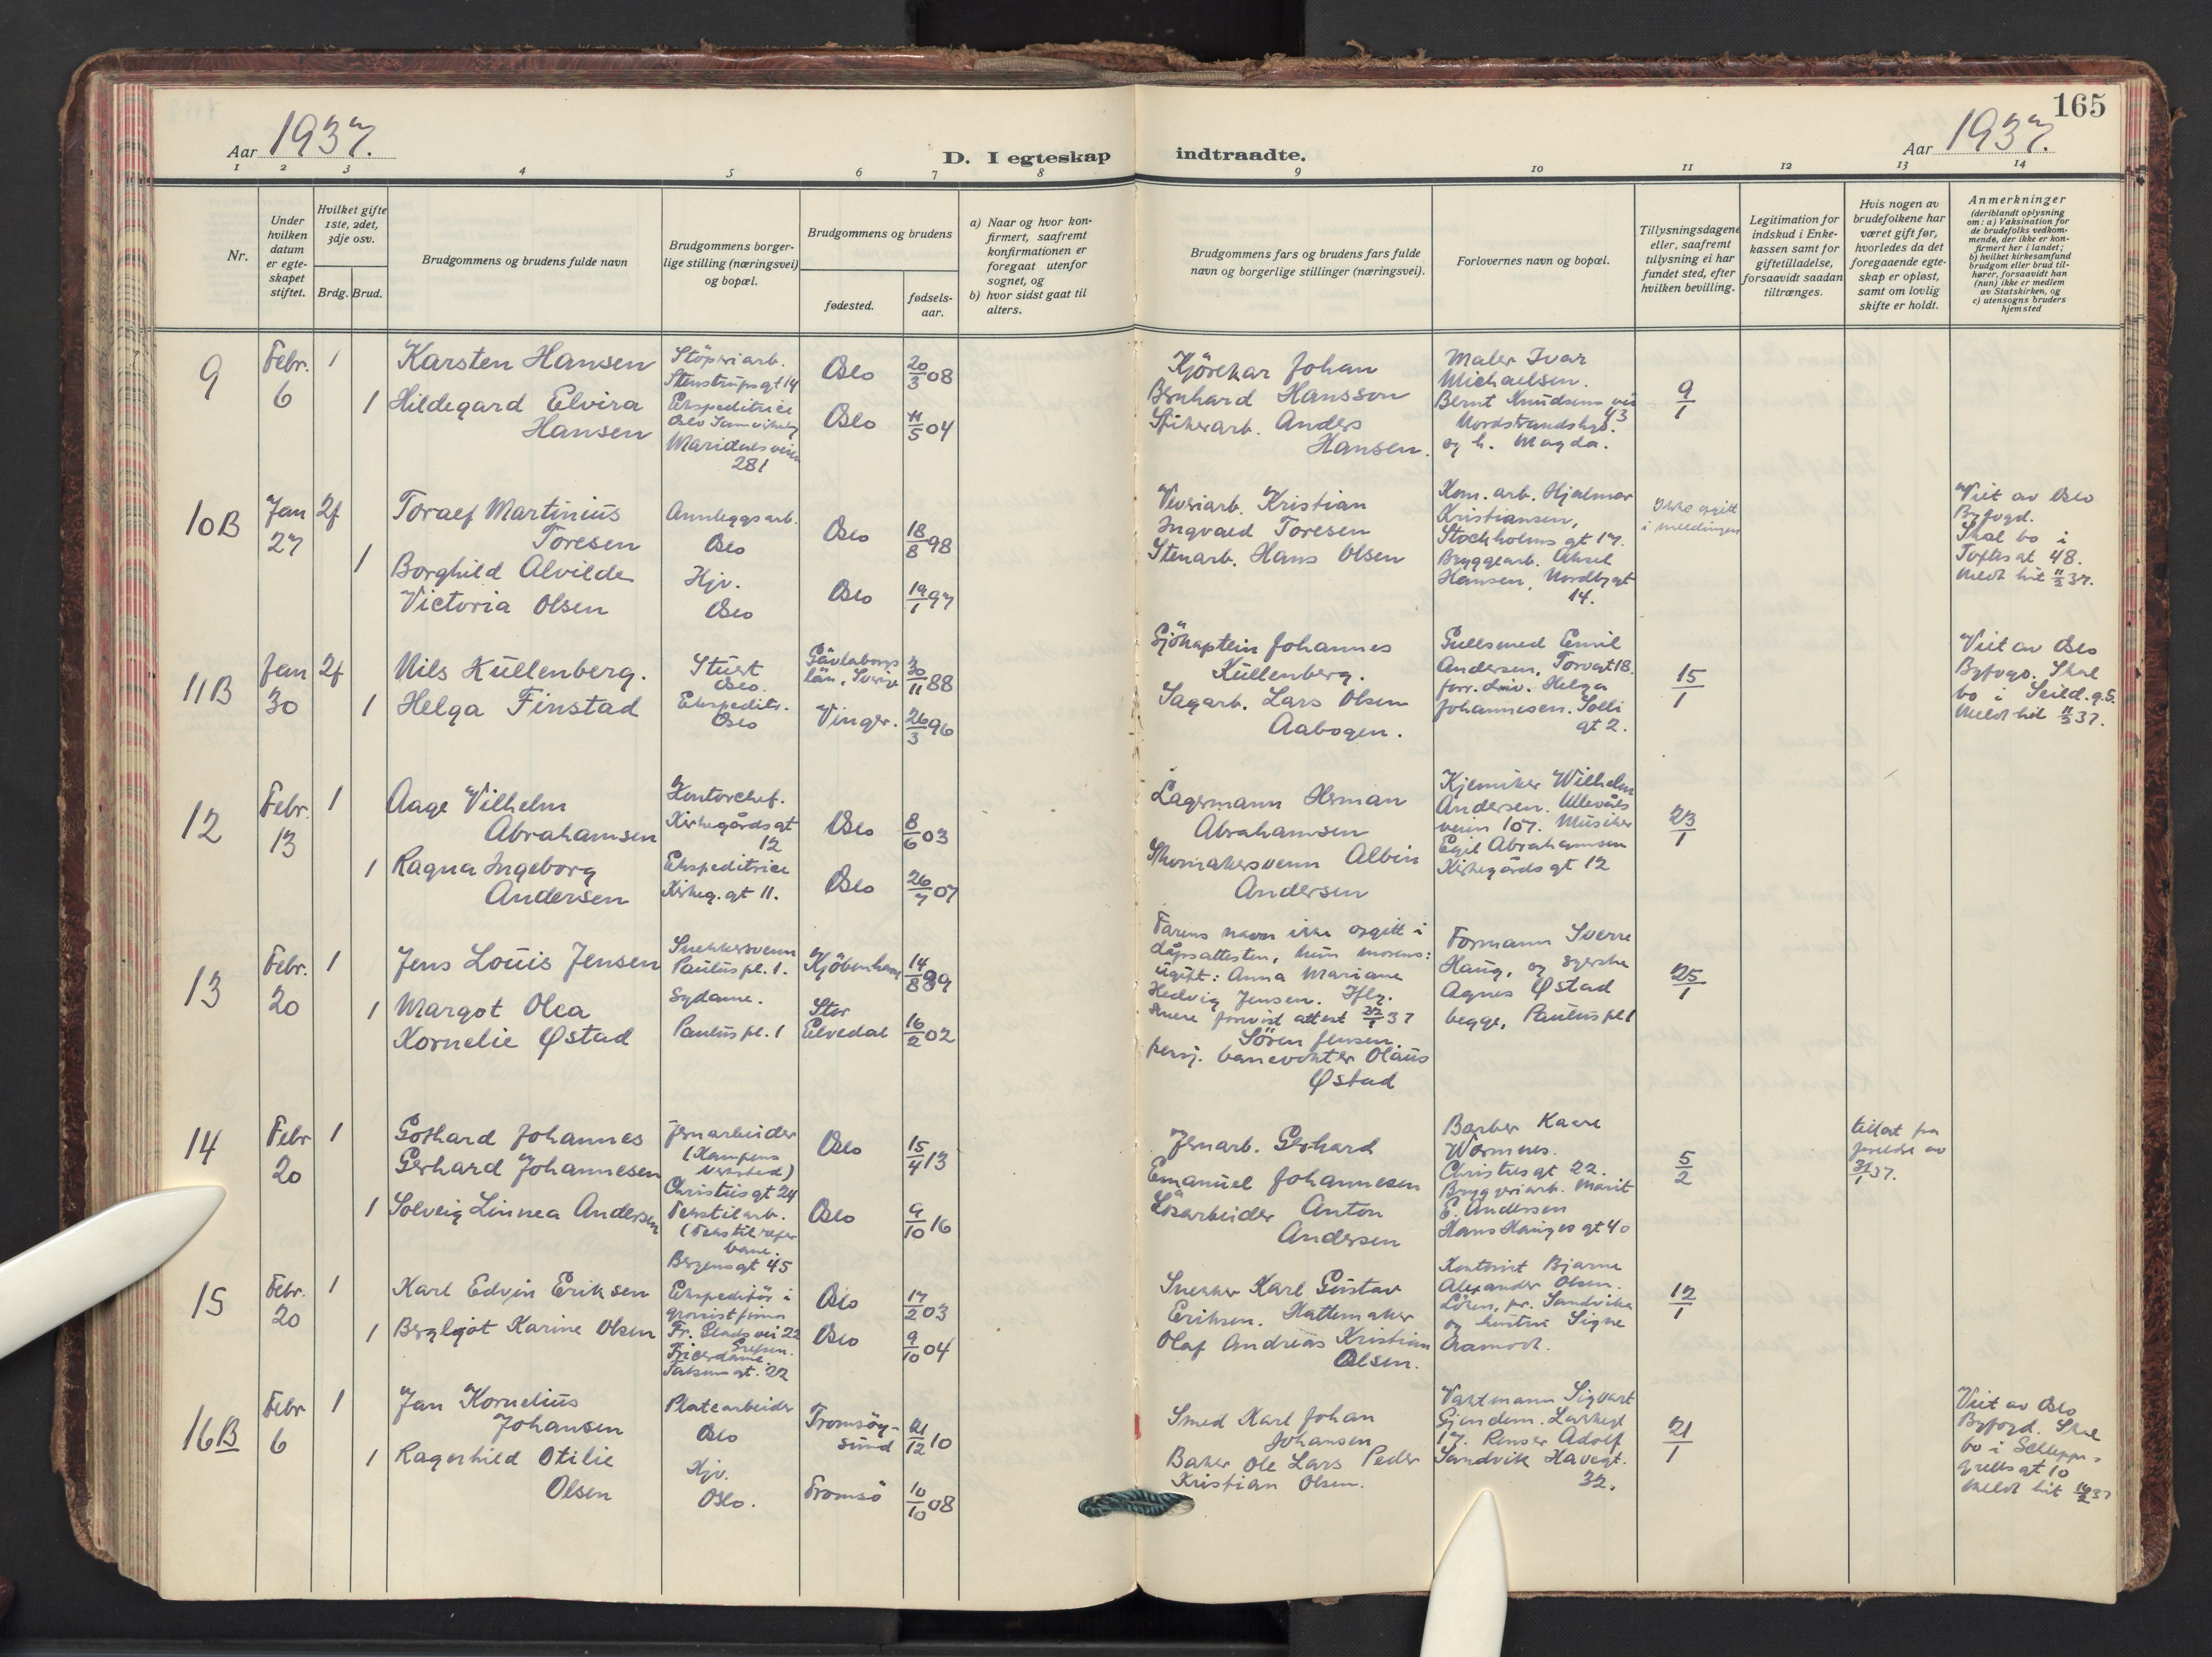 165
Aar 1937.
D. I egteskap indtraadte.
Aar 1937.
1 2 3 4 5 6 7 8 9 10 11 12 13 14
Nr.
Under
hvilken
datum
er egte-
skapet
stiftet.
Hvilket gifte
1ste, 2det,
3dje osv.
Brdg. Brud.
Brudgommens og brudens fulde navn
Brudgommens borger-
lige stilling (næringsvei)
og bopæl.
Brudgommens og brudens
fødested.
fødsels-
aar.
a) Naar og hvor kon-
firmert, saafremt
konfirmationen er
foregaat utenfor
sognet, og
b) hvor sidst gaat til
alters.
Brudgommens fars og brudens fars fulde
navn og borgerlige stillinger (næringsvei).
Forlovernes navn og bopæl.
Tillysningsdagene
eller, saafremt
tillysning ei har
fundet sted, efter
hvilken bevilling.
Legitimation for
indskud i Enke-
kassen samt for
giftetilladelse,
forsaavidt saadan
tiltrænges.
Hvis nogen av
brudefolkene har
været gift før,
hvorledes da det
foregaaende egte-
skap er opløst,
samt om lovlig
skifte er holdt.
Anmerkninger
(deriblandt oplysning
om: a) Vaksination for
de brudefolks vedkom-
mende, der ikke er kon-
firmert her i landet;
b) hvilket kirkesamfund
brudgom eller brud til-
hører, forsaavidt han
(hun) ikke er medlem
av Statskirken, og
c) utensogns bruders
hjemsted
9
Febr.
6
1
1
Karsten Hansen
Hildegard Elvira
Hansen
Støperiarb.
Stenstrupsgt 14
Ekspeditrice
Oslo Samvirkelag
Maridalsveien
281
Oslo
Oslo
20/3 08
11/5 04
Kjørekar Johan
Bernhard Hansson
Spikerarb. Anders
Hansen.
Maler Ivar
Michaelsen.
Bernt Knudsens vei
43
Nordstrandshøgd.
og h. Magda.
9/1
10B
Jan
27
2f
1
Toralf Martinius
Toresen
Borghild Alvilde
Victoria Olsen
Annleggsarb.
Oslo
Hjv.
Oslo
Oslo
Oslo
18/8 98
19/1 97
Veveriarb. Kristian
Ingvald Toresen
Stenarb. Hans Olsen
Kom. arb. Hjalmar
Kristiansen,
Stockholms gt 17.
Bryggearb. Aksel
Hansen, Nordbygt
14.
Ikke opgitt
i meldingen
Viet av Oslo
Byfogd.
Skal bo i
Toftes gt. 48.
Meldt hit 11/2 37.
11B
Jan
30
2f
1
Nils Küllenberg.
Helga Finstad
Stuert
Oslo.
Ekspeditr.
Oslo
Gävleborgs
län, Sverige
Vinger.
30/11 88
26/3 96
Sjökaptein Johannes
Küllenberg.
Sagarb. Lars Olsen
Aabogen.
Gullsmed Emil
Andersen, Torvgt 18.
forr.driv. Helga
Johannesen. Solli
gt 2.
15/1
Viet av Oslo
Byfogd. Skal
bo i Seild.g.5.
Meldt hit 11/2 37.
12
Febr.
13
1
1
Aage Vilhelm
Abrahamsen
Ragna Ingeborg
Andersen
Kontorchef.
Kirkegårdsgt
12
Ekspeditrice
Kirkeg.gt 11.
Oslo
Oslo
8/6 03
26/7 07
Lagermann Herman
Abrahamsen
Skomakersvenn Albin
Andersen
Kjemiker Wilhelm
Andersen. Ullevåls
veien 107. Musiker
Egil Abrahamsen
Kirkegårdsgt 12
23/1
13
Febr.
20
1
1
Jens Louis Jensen
Margot Olea
Kornelie Østad
Snekkersvenn
Pauluspl. 1.
Sydame.
Pauluspl. 1
Kjöbenhavn
Stor
Elvedal
14/8 89
16/2 02
Farens navn ikke opgitt i
dåpsattesten, kun morens:
ugift: Anna Mariane
Hedvig Jensen. Iflg.
senere forevist attest 27/1 37
Sören Jensen.
pensj. banevokter Olaus
Østad
Formann Sverre
Haug, og syerske
Agnes Østad
begge, Pauluspl 1
25/1
14
Febr
20
1
1
Gothard Johannes
Gerhard Johannesen
Solveig Linnea Andersen
Jernarbeider
(Kampens
verksted)
Christies gt 24
Tekstilarb.
(Tekstil reper
bane.
Bergensgt 45
Oslo
Oslo
15/4 13
9/10 16
Jernarb. Gerhard
Emanuel Johannesen
Løsarbeider Anton
Andersen
Barber Kaare
Wormnes.
Christies gt 22.
Bryggeriarb. Marit
E. Andersen
Hans Hauges gt 40
5/2
15
Febr.
20
1
1
Karl Edvin Eriksen
Bergljot Karine Olsen
Ekspeditör i
grossistfirma
Fr. Glads vei 22
Grefsen.
Friserdame.
Oslo
Oslo
17/2 03
9/10 04
Snekker Karl Gustav
Eriksen. Hattemaker
Olaf Andreas Kristian
Olsen.
Kontorist Bjarne
Alexander Olsen.
Löken, pr. Sandvika
og hustru Signe
Aamodt.
12/1
16B
Febr
6
1
1
Jan Kornelius
Johansen
Ragnhild Otilie
Olsen
Platearbeider
Oslo
Hjv.
Oslo.
Tromsöy-
sund
Tromsö
21/12 10
10/10 08
Smed Karl Johan
Johansen
Baker Ole Lars Peder
Kristian Olsen.
Vaktmann Sigvart
Gjendem. Lakkegt
17. Renser Adolf
Sandvik Havegt.
32.
21/1
Viet av Oslo
Byfogd. Skal
bo i Schleppe-
grells gt 10
Meldt hit 16/2 37